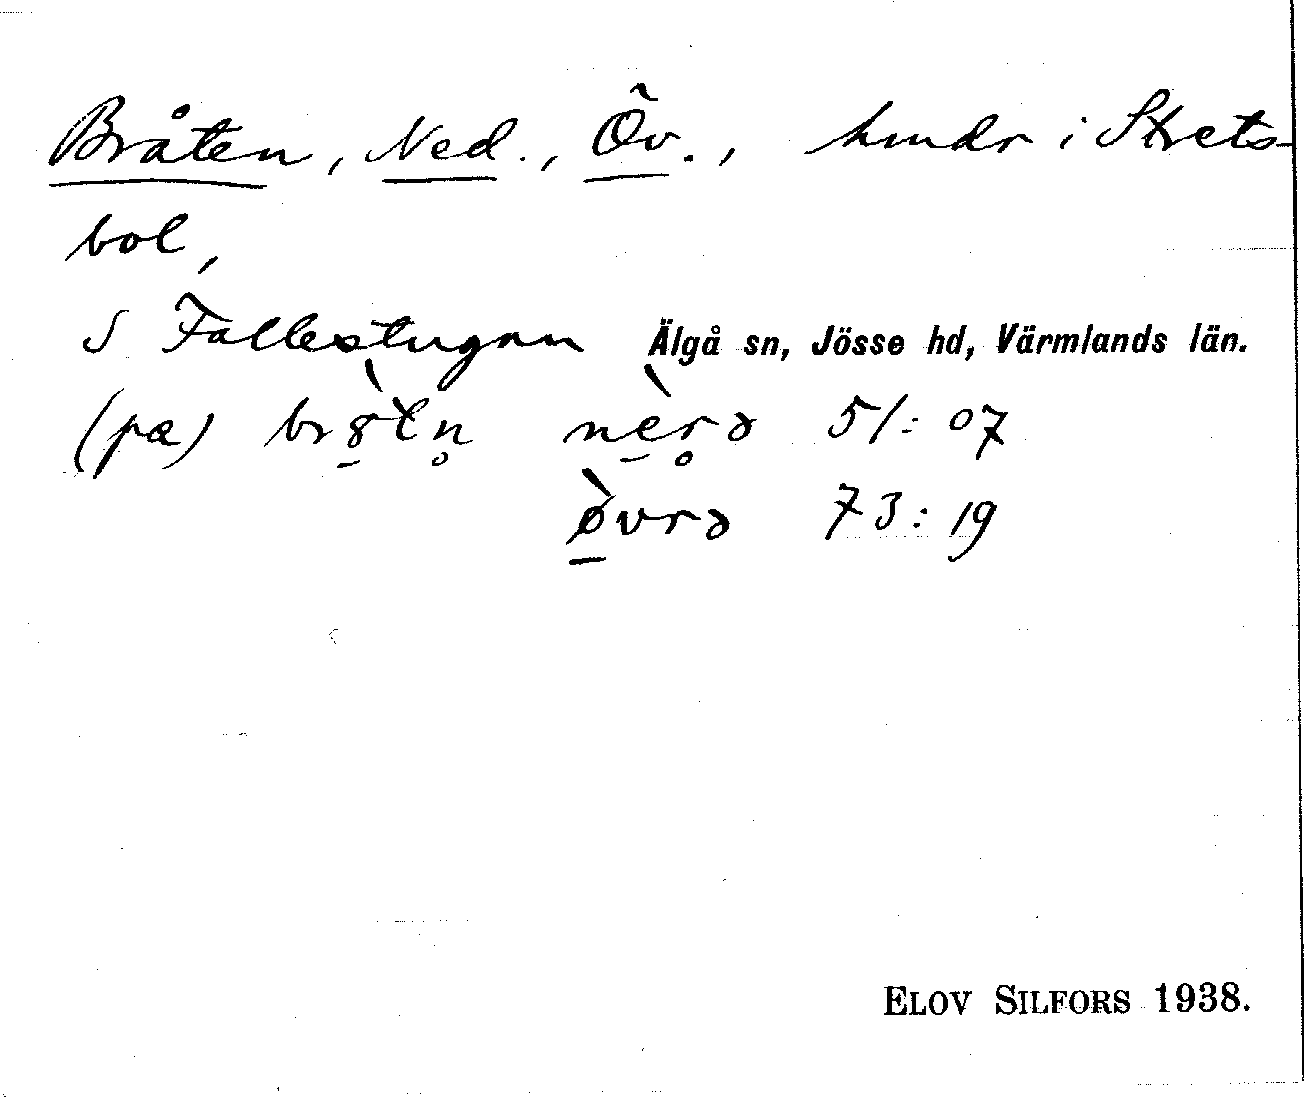 Bråten, Ned., Öv., hmdr i Strets-
bol,
S Fallestugan Älgå sn, Jösse hd, Värmlands län.
(pæ) br8̱̀tn̥ nè̱r̥ə 51: 07
ø̱̀vrə 73: 19
ELOV SILFORS 1938.